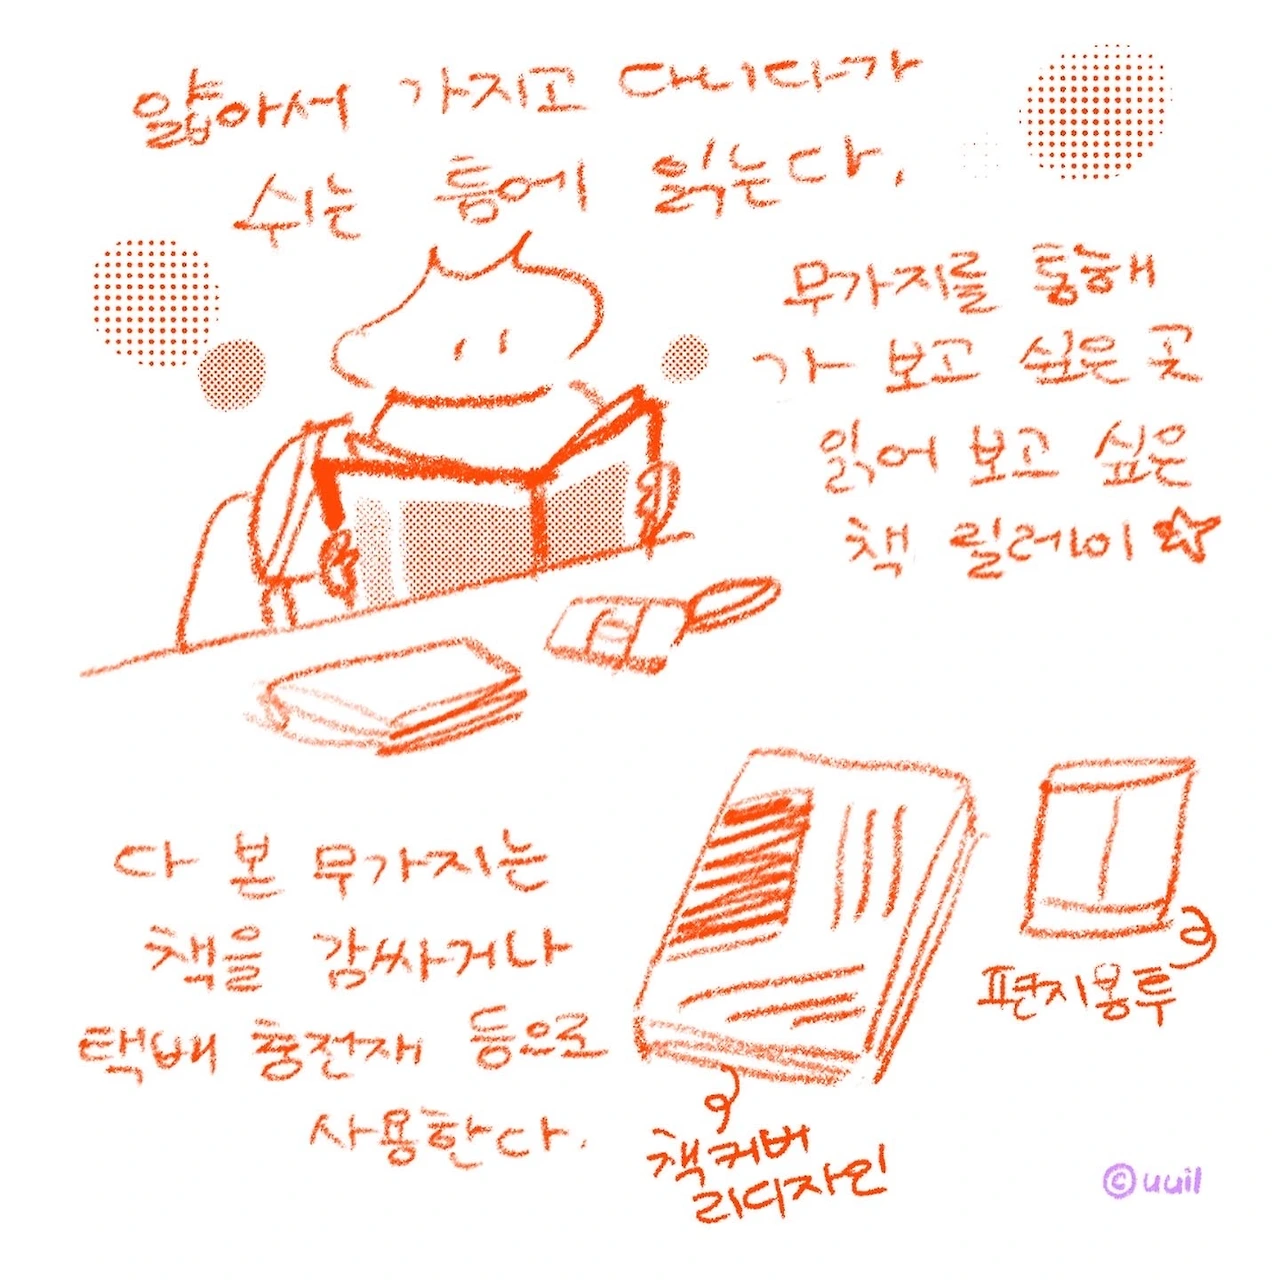 얇아서 가지고 다니다가
쉬는 틈에 읽는다.
무가지를 통해
가 보고 싶은 곳
읽어 보고 싶은
책 릴레이☆
다 본 무가지는
책을 감싸거나
택배 충전재 등으로
사용한다.
편지봉투
책커버
리디자인
©uuil